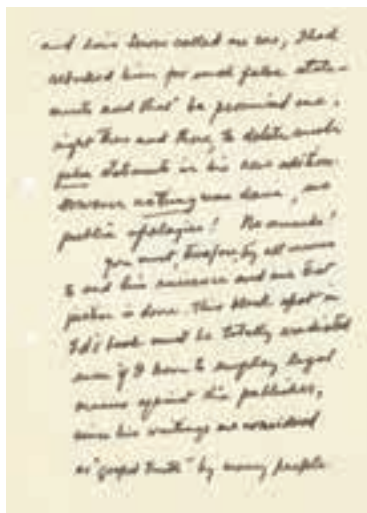 and
him for such false state-
ments and that he promised me,
right then and there, to delete such
false statements in his new edition.
However nothing was done, no
public apologies! No amends!
you must, therefore, by all means
and see that
justice is done. This black spot in
Ed's book must be totally eradicated
even if I have to employ legal
means against the publisher,
since his writings are considered
as "gospel truth" by many people